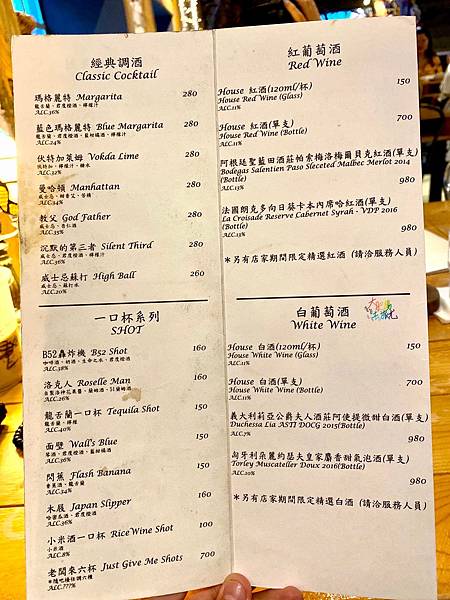 經典調酒
Classic Cocktail
瑪格麗特 Margarita 280
龍舌蘭、君度橙酒、檸檬汁
ALC.36%
藍色瑪格麗特 Blue Margarita 280
龍舌蘭、君度橙酒、藍柑橘酒、檸檬汁
ALC.24%
伏特加萊姆 Vokda Lime 280
伏特加、檸檬汁、糖水
ALC.32%
曼哈頓 Manhattan 280
威士忌、甜香艾、苦精
ALC.34%
教父 God Father 280
威士忌、杏仁酒
ALC.35%
沉默的第三者 Silent Third 280
威士忌、君度橙酒、檸檬汁
ALC.36%
威士忌蘇打 High Ball 260
威士忌、蘇打水
ALC.20%
一口杯系列
SHOT
B52轟炸機 B52 Shot 160
咖啡酒、奶酒、生命之水、君度橙酒
ALC.38%
洛克人 Roselle Man 160
自製洛神花果醬、蘭姆酒、151蘭姆酒
ALC.26%
龍舌蘭一口杯 Tequila Shot 150
龍舌蘭、檸檬
ALC.40%
面壁 Wall's Blue 150
琴酒、君度橙酒、藍柑橘酒
ALC.36%
閃蕉 Flash Banana 150
香蕉酒、龍舌蘭
ALC.34%
木屐 Japan Slipper 160
哈密瓜酒、君度橙酒
ALC.36%
小米酒一口杯 Rice Wine Shot 100
小米酒
ALC.8%
老闆來六杯 Just Give Me Shots 700
*隨吧檯任調六種
ALC.???%
紅葡萄酒
Red Wine
House 紅酒(120ml/杯) 150
House Red Wine (Glass)
ALC.11%
House 紅酒(單支) 700
House Red Wine (Bottle)
ALC.11%
阿根廷聖藍田酒莊帕索梅洛梅爾貝克紅酒(單支)
Bodegas Salentien Paso Sleceted Malbec Merlot 2014
(Bottle) 980
ALC.13%
法國朗克多向日葵卡本內席哈紅酒(單支)
La Croisade Reserve Cabernet Syrah - VDP 2016
(Bottle) 980
ALC.13%
*另有店家期間限定精選紅酒 (請洽服務人員)
白葡萄酒
White Wine
House 白酒(120ml/杯) 150
House White Wine (Glass)
ALC.11%
House 白酒(單支) 700
House White Wine (Bottle)
ALC.11%
義大利莉亞公爵夫人酒莊阿使提微甜白酒(單支)
Duchessa Lia ASTI DOCG 2015(Bottle)
ALC.7% 980
匈牙利朵麗約瑟夫皇家麝香甜氣泡酒(單支)
Torley Muscateller Doux 2016(Bottle)
ALC.10% 980
*另有店家期間限定精選白酒 (請洽服務人員)